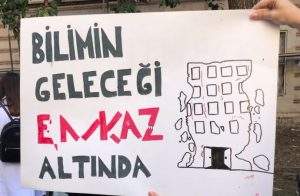 BİLİMİN
GELECEĞİ
ENKAZ
ALTINDA